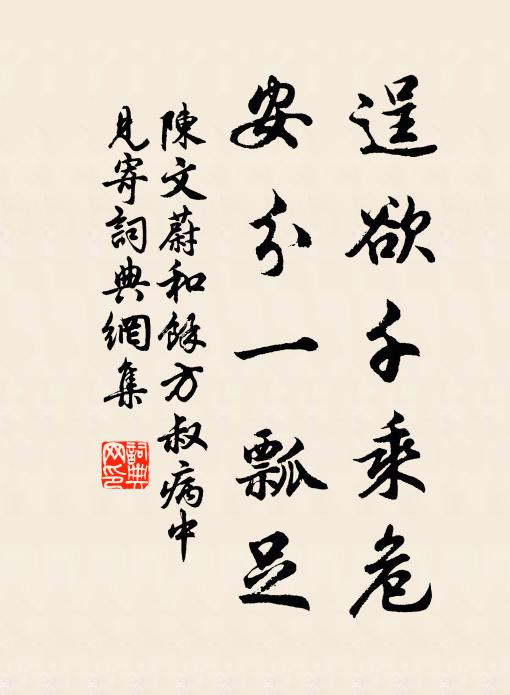 逞欲千乘危
安分一瓢足
陳文蔚和餘方叔病中
見寄詞典網集
詞典
网印